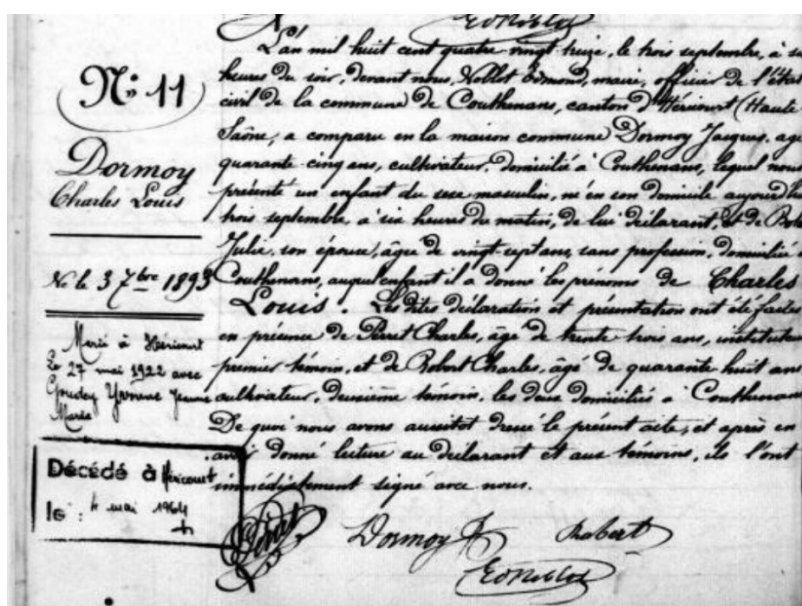 N° 11
Dormoy
Charles Louis
Né le 3 7bre 1893
Marié à Héricourt
le 27 mai 1922 avec
Yvonne Jeanne
Marie
Décédé à Héricourt
le : 4 mai 1964
L'an mil huit cent quatre vingt treize, le trois septembre, à
heures du soir, devant nous, Noblot Edmond, maire, officier de l'état
civil de la commune de Couthenans, canton d'Héricourt (Haute
Saône, a comparu en la maison commune Dormoy Jacques, agé
quarante cinq ans, cultivateur, domicilié à Couthenans, lequel nous
présenté un enfant du sexe masculin, né en son domicile aujourd'hui
trois septembre, à six heures du matin, de lui déclarant, et de
Julie, son épouse, âgée de vingt sept ans, sans profession, domiciliée à
Couthenans, auquel enfant il a donné les prénoms de Charles
Louis. Les dites déclaration et présentation ont été faites
en présence de Perret Charles, âgé de trente trois ans, instituteur
premier témoin, et de Robert Charles, âgé de quarante huit ans
cultivateur, deuxième témoin, les deux domiciliés à Couthenans
De quoi nous avons aussitot dressé le présent acte, et après en
avoir donné lecture au déclarant et aux témoins, ils l'ont
immédiatement signé avec nous.
Perret Dormoy J Robert
Ed Noblot